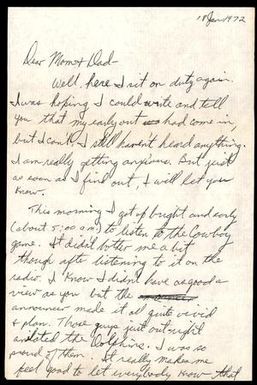 18 Jan 1972
Dear Mom & Dad-
Well, here I sit on duty again.
I was hoping I could write and tell
you that my early out had come in
but I can't. I still haven't heard anything.
I am really getting anxious. But just
as soon as I find out, I will let you
know.
This morning I got up bright and early
(about 5:00 am) to listen to the Cowboy
game. It didn't bother me a bit
though after listening to it on the
radio. I know I didn't have as good a
view as you but the
announcer made it all quite vivid
& plain. Those guys just outright
the Dolphins. I was so
proud of them. It really makes me
feel good to let everybody know that